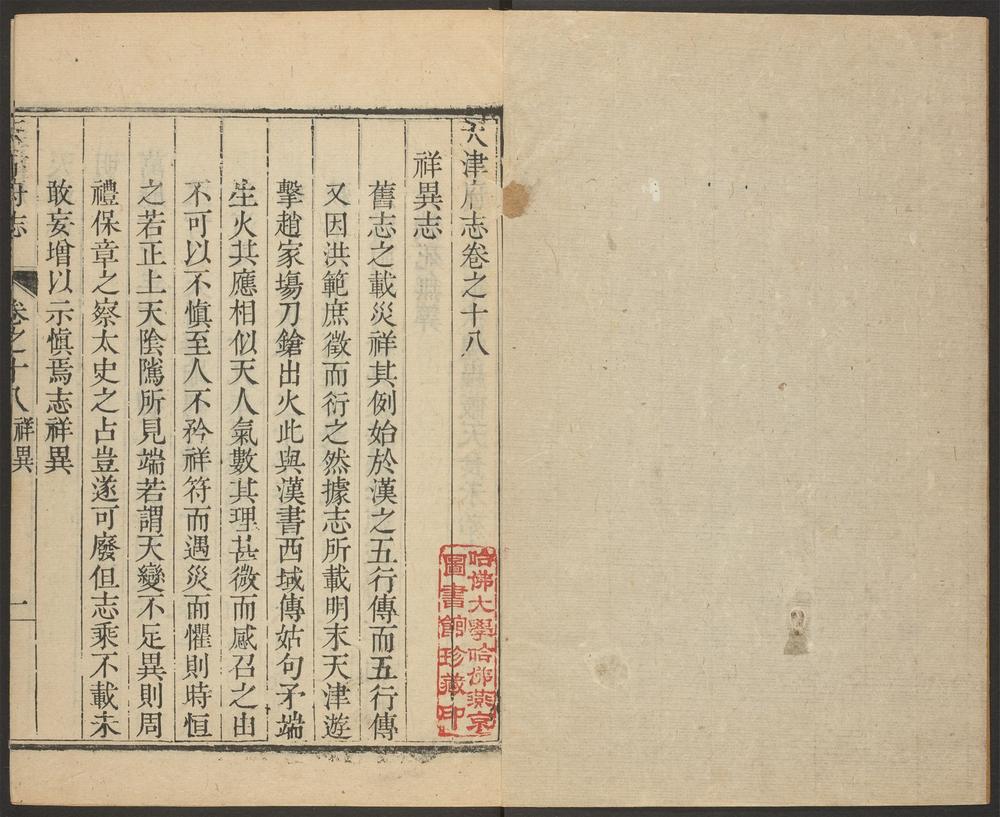 天津府志卷之十八
祥異志
舊志之載災祥其例始於漢之五行傳而五行傳
又因洪範庶徵而衍之然據志所載明末天津遊
擊趙家塲刀鎗出火此與漢書西域傳姑句矛端
生火其應相似天人氣數其理甚微而感召之由
不可以不慎至人不矜祥符而遇災而懼則時恒
之若正上天陰隲所見端若謂天變不足異則周
禮保章之察太史之占豈遂可廢但志乘不載未
敢妄增以示慎焉志祥異
天津府志 卷之十八 祥異 一
哈佛大學哈佛燕京
圖書館珍藏印